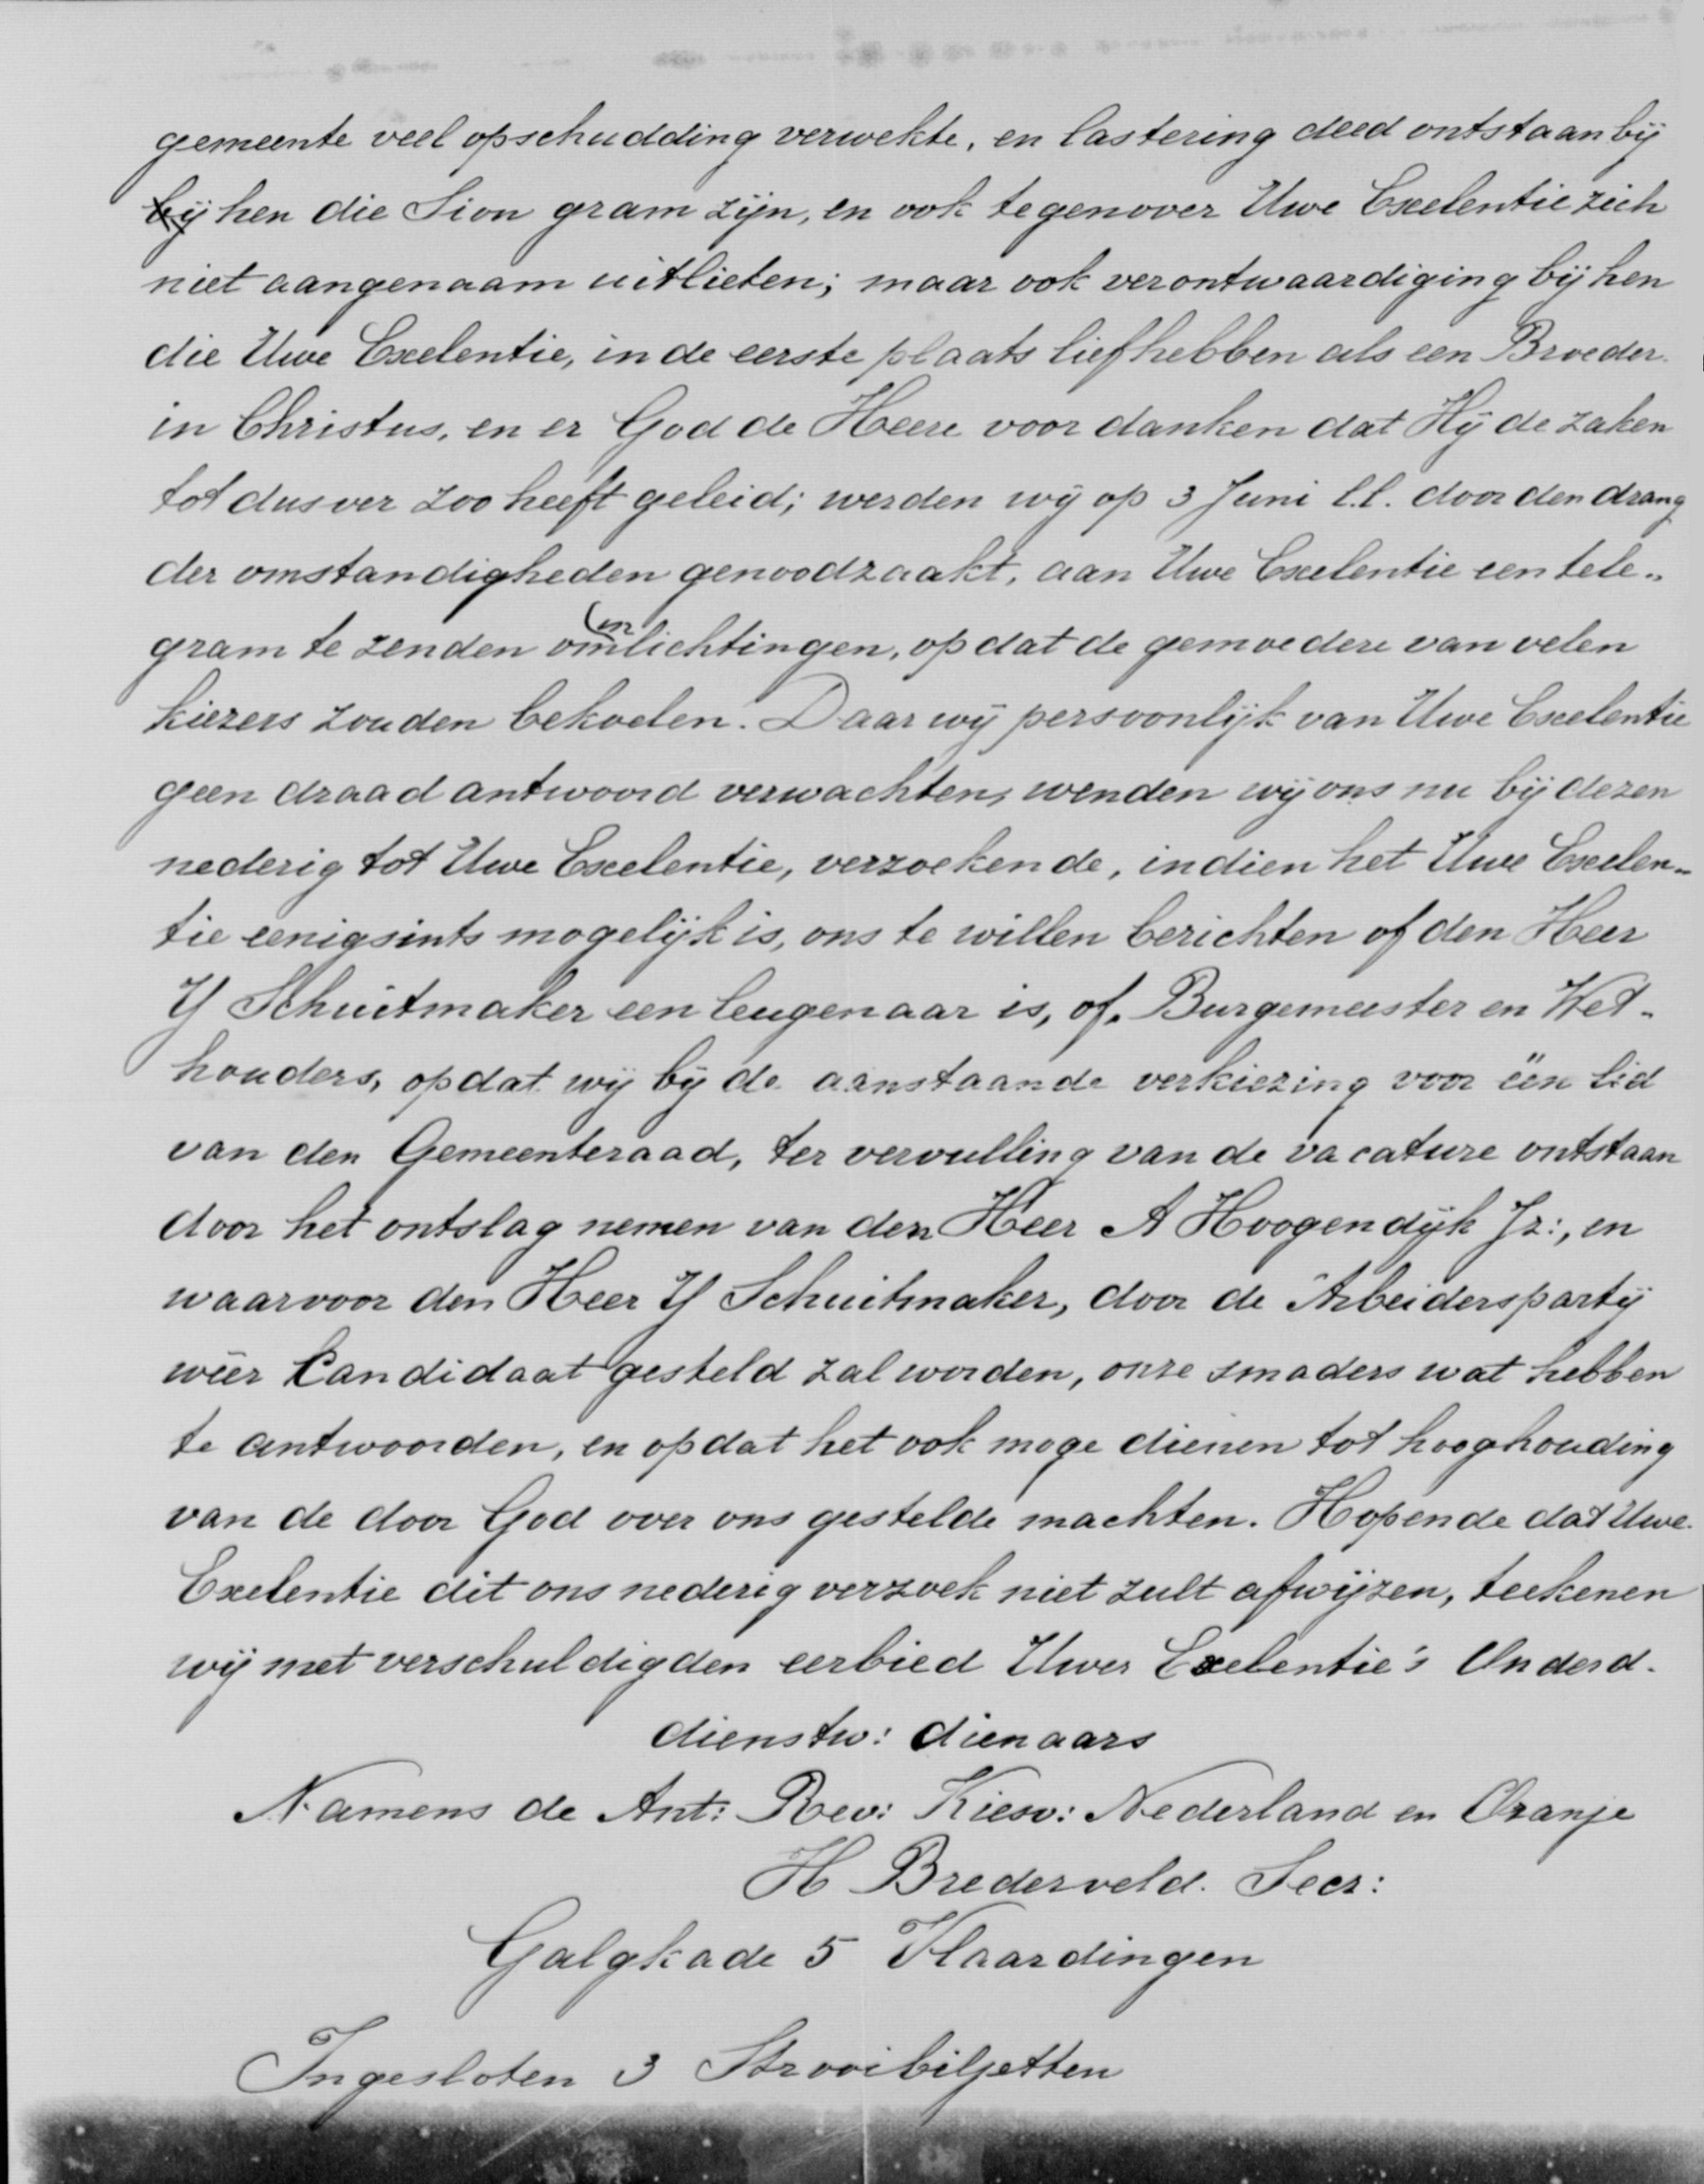 gemeente veel opschudding verwekte, en lastering deed ontstaan bij
bij hen die Sion gram zijn, en ook tegenover Uwe Excelentie zich
niet aangenaam uitlieten; maar ook verontwaardiging bij hen
die Uwe Exelentie, in de eerste plaats liefhebben als een Broeder
in Christus, en er God de Heere voor danken dat Hij de zaken
tot dusver zoo heeft geleid; werden wij op 3 Juni l.l. door den drang
der omstandigheden genoodzaakt, aan Uwe Exelentie een tele„
gram te zenden om inlichtingen, opdat de gemoedere van velen
kiezers zouden bekoelen. Daar wij persoonlijk van Uwe Exelentie
geen draad antwoord verwachten, wenden wij ons nu bij dezen
nederig tot Uwe Exelentie, verzoekende, indien het Uwe Exelen„
tie eenigsints mogelijk is, ons te willen berichten of den Heer
IJ Schuitmaker een leugenaar is, of. Burgemeester en Wet-
houders, opdat wij bij de aanstaande verkiezing voor één lid
van den Gemeenteraad, ter vervulling van de vacature ontstaan
door het ontslag nemen van den Heer A Hoogendijk Jz:, en
waarvoor den Heer IJ Schuitmaker, door de Arbeiderspartij
wéér Candidaat gesteld zal worden, onze smaders wat hebben
te antwoorden, en opdat het ook moge dienen tot hooghouding
van de door God over ons gestelde machten. Hopende dat Uwe
Exelentie dit ons nederig verzoek niet zult afwijzen, teekenen
wij met verschuldigden eerbied Uwer Exelentie's Onderd.
dienstw: dienaars
Namens de Ant: Rev: Kiesv: Nederland en Oranje
H Brederveld. Secr:
Galgkade 5 Vlaardingen
Ingesloten 3 Strooibiljetten